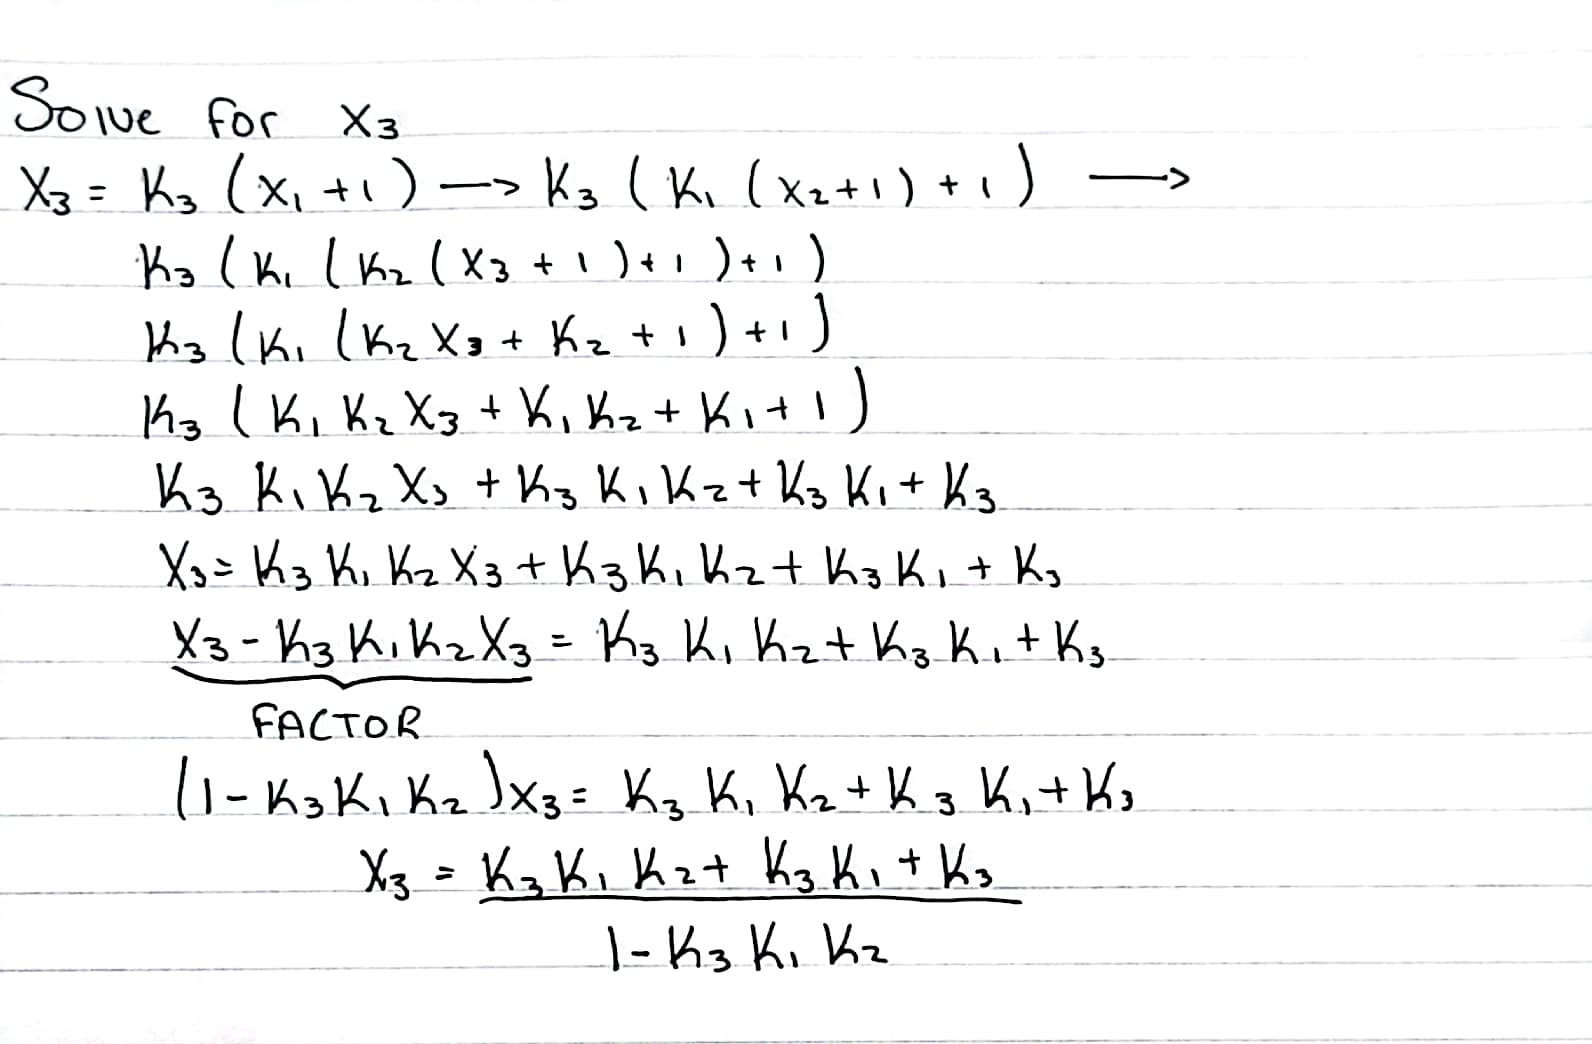 Solve for X₃
X₃ = K₃ (X₁ + 1) → K₃ (K₁ (X₂ + 1) + 1) →
K₃ (K₁ (K₂ (X₃ + 1) + 1) + 1)
K₃ (K₁ (K₂ X₃ + K₂ + 1) + 1)
K₃ (K₁ K₂ X₃ + K₁ K₂ + K₁ + 1)
K₃ K₁ K₂ X₃ + K₃ K₁ K₂ + K₃ K₁ + K₃
X₃ = K₃ K₁ K₂ X₃ + K₃ K₁ K₂ + K₃ K₁ + K₃
X₃ - K₃ K₁ K₂ X₃ = K₃ K₁ K₂ + K₃ K₁ + K₃
FACTOR
(1 - K₃ K₁ K₂) X₃ = K₃ K₁ K₂ + K₃ K₁ + K₃
X₃ = K₃ K₁ K₂ + K₃ K₁ + K₃
1 - K₃ K₁ K₂